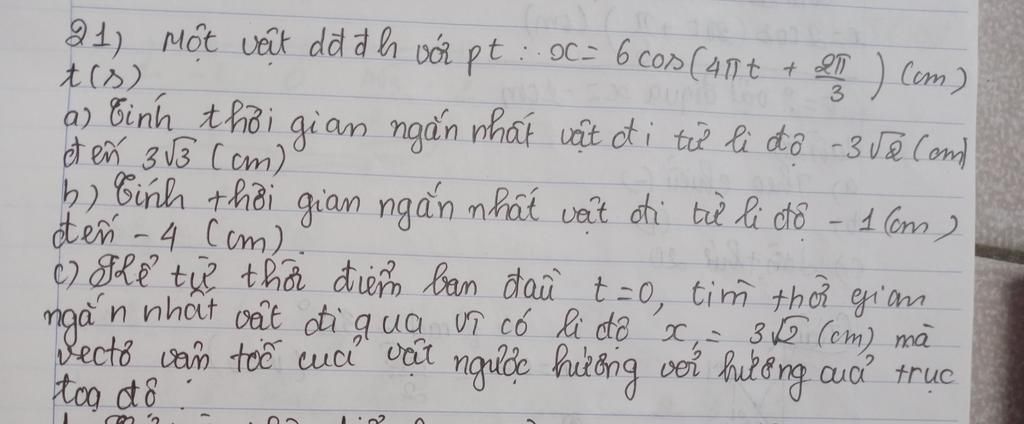 21) Một vật dđđh với pt : x = 6 cos(4πt + 2π/3) (cm)
t(s)
a) Tính thời gian ngắn nhất vật đi từ li độ -3√2 (cm)
đến 3√3 (cm)
b) Tính thời gian ngắn nhất vật đi từ li độ -1 (cm)
đến -4 (cm).
c) Kể từ thời điểm ban đầu t=0, tìm thời gian
ngắn nhất vật đi qua vị có li độ x₁ = 3√2 (cm) mà
vectơ vận tốc của vật ngược hướng với hướng của trục
toạ độ.